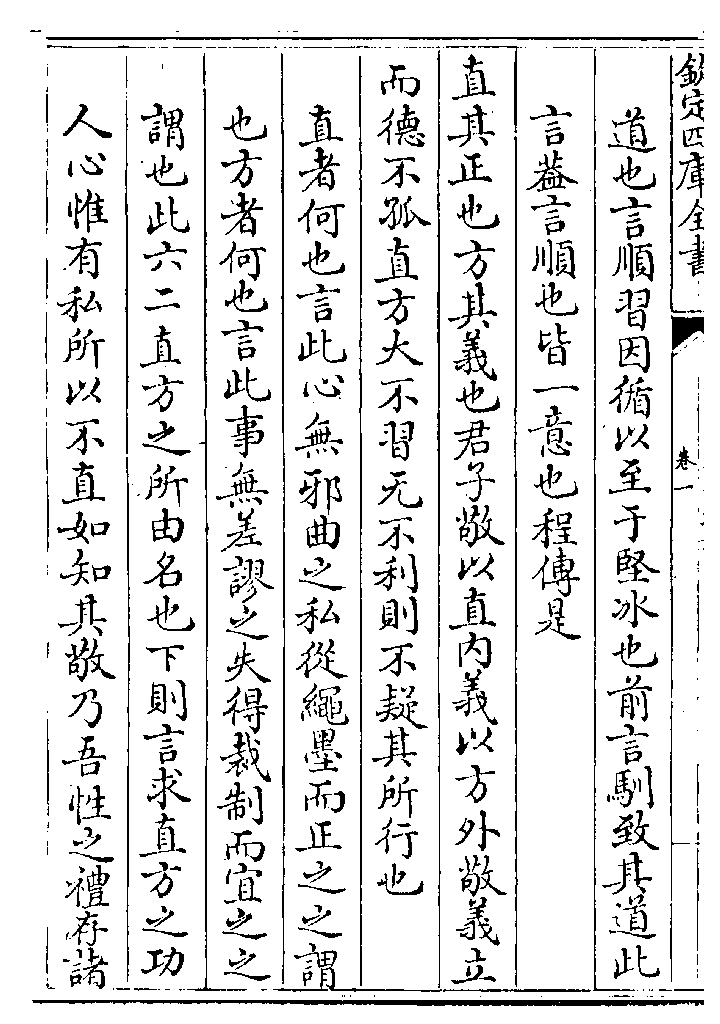 欽定四庫全書
卷一
道也言順習因循以至于堅冰也前言馴致其道此
言葢言順也皆一意也程傳是
直其正也方其義也君子敬以直内義以方外敬義立
而德不孤直方大不習无不利則不疑其所行也
直者何也言此心無邪曲之私從繩墨而正之之謂
也方者何也言此事無差謬之失得裁制而宜之之
謂也此六二直方之所由名也下則言求直方之功
人心惟有私所以不直如知其敬乃吾性之禮存諸